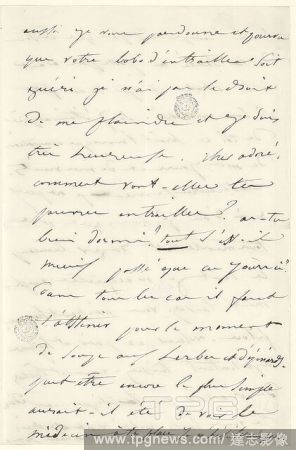 aussi je vous pardonne et pourvu
que votre bobo d'entrailles soit
guéri je n'ai pas le droit
de me plaindre et je suis
très heureuse. cher adoré,
comment vont-elles tes
pauvres entrailles? as-tu
bien dormi? tout s'est-il
passé que
Dans tous les cas il faut
pour le moment
de soupe aux herbes et d'épinards
peut être encore le plus simple
aurait-il été de voir le
médecin
TPG
www.tpgnews.com/達志影像